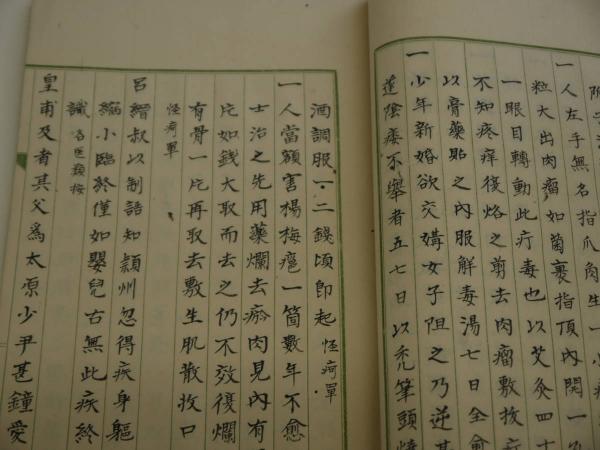 一人左手無名指爪角生一小
粒大出肉瘤如菌裹指頂內開一
一眼目轉動此疔毒也以艾灸四十
不知疼痒後烙之剪去肉瘤敷拔疔
以膏藥貼之內服解毒湯七日全愈
一少年新婚欲交媾女子阻之乃逆其
莖陰痿不舉者五七日以禿筆頭燒
酒調服一二錢頃即起怪疴單
一人當額害楊梅瘡一箇數年不愈
士治之先用藥爛去瘀肉見內有
片如錢大取而去之仍不效復爛
有骨一片再取去敷生肌散收口
怪疴單
呂縉叔以制誥知潁州忽得疾身軀
縮小臨終僅如嬰兒古無此疾終
識名医類按
皇甫及者其父為太原少尹甚鐘愛